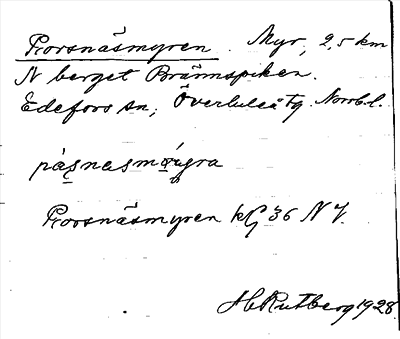 Porsnäsmyren. Myr, 2,5 km
N berget Brännspiken.
Edefors sn, Överluleå tg. Norrb.l.
Porsnäsmyren kG 36 N 7.
H Rutberg 1928.